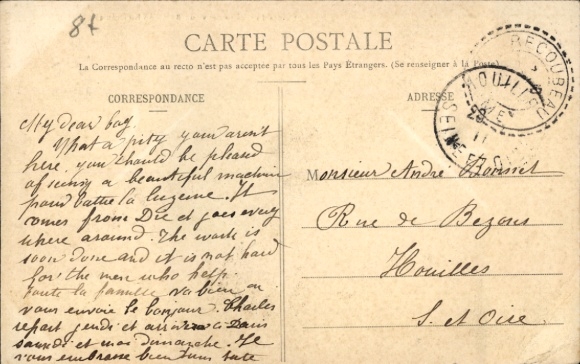 8t
CARTE POSTALE
La Correspondance au recto n'est pas acceptée par tous les Pays Étrangers. (Se renseigner à la Poste)
CORRESPONDANCE
ADRESSE
RECOUBEAU
HOUILLES
SEINE
My dear boy
What a pity you aren't
here. you should be pleased
of seeing a beautiful machine
pour battre la luzerne. It
comes from Die et goes every
where around. The work is
soon done and it is not hard
for the men who help.
toute la famille va bien ou
vous envoie le bonjour. Charles
repart jeudi et arrivera à Paris
samedi et moi dimanche. Je
vous embrasse bien
Monsieur André
Rue de Bezons
Houilles
S. et Oise